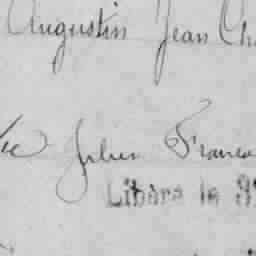 Augustin Jean Ch
Julien Franco
Libéré le